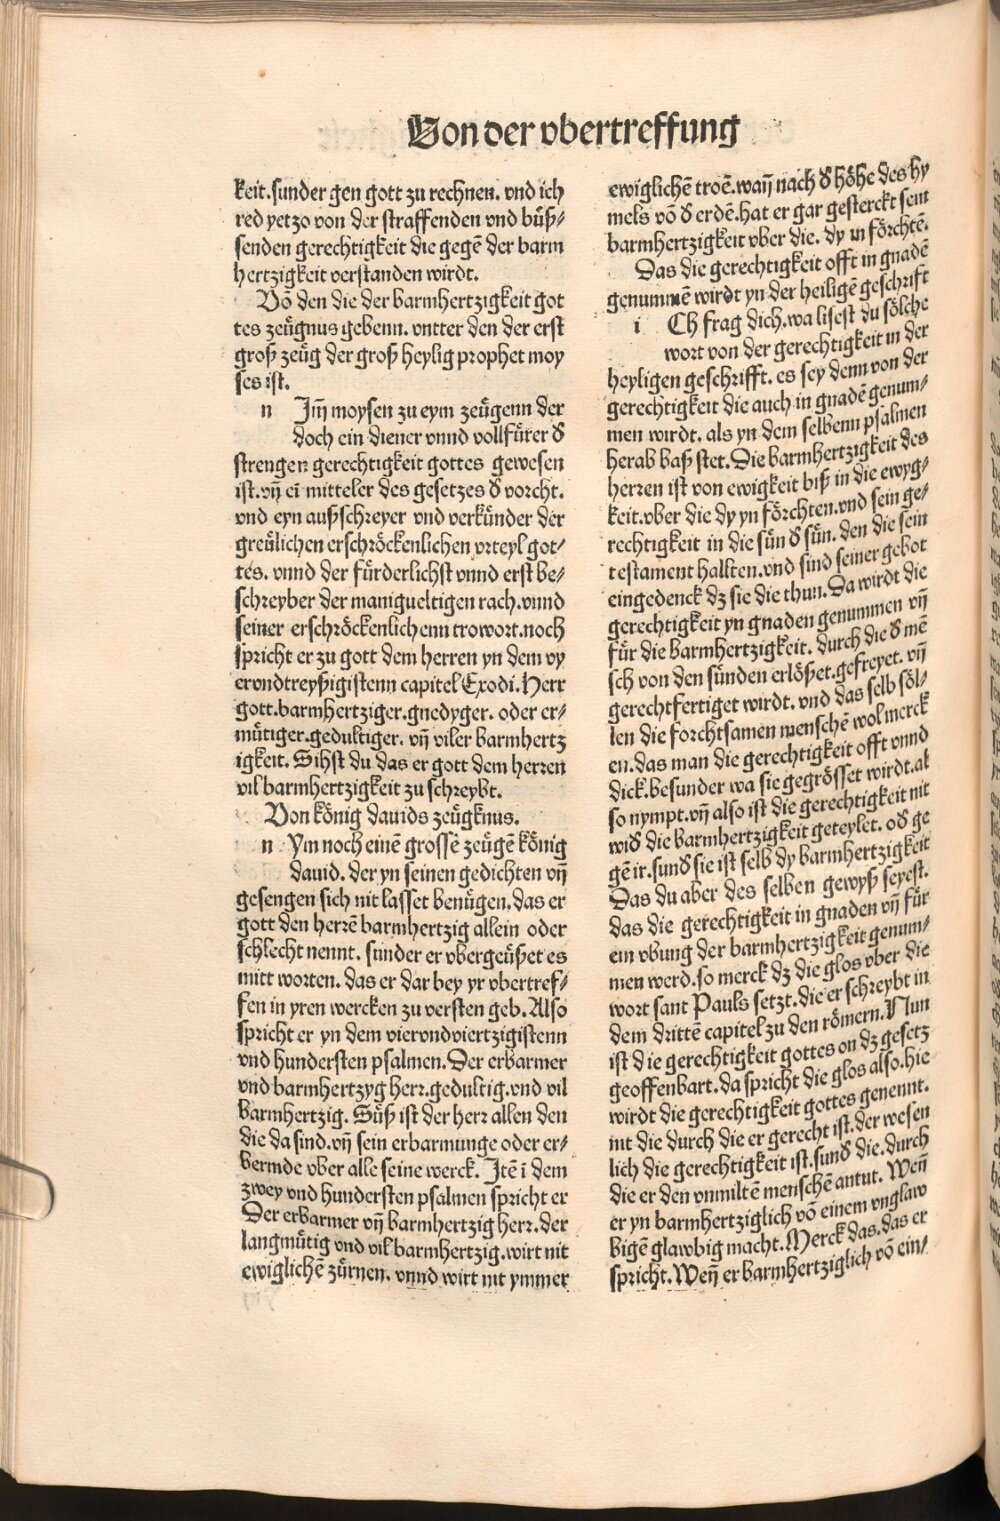 Von der vbertreffung
keit.sunder gen gott zu rechnen. vnd ich
red yetzo von der straffenden vnd büß⸗
senden gerechtigkeit die gegē der barm
hertzigkeit verstanden wirdt.
Vō den die der barmhertzigkeit got
tes zeügnus gebenn. vntter den der erst
groß zeüg der groß heylig prophet moy
ses ist.
n Jm̄ moysen zu eym zeügenn der
doch ein diener vnnd vollfürer d̕
strengen gerechtigkeit gottes gewesen
ist.vn̄ eī mitteler des gesetzes d̕ vorcht.
vnd eyn außschreyer vnd verkünder der
greülichen erschröckenlichen vrteyl got⸗
tes. vnnd der fürderlichst vnnd erst be⸗
schreyber der manigueltigen rach.vnnd
seiner erschröckenlichenn trowort.noch
spricht er zu gott dem herren yn dem vy
ervndtreyßigistenn capitel Exodi. Herr
gott.barmhertziger.gnedyger. oder er⸗
mütiger.gedultiger. vn̄ viler barmhertz
igkeit. Sihst du das er gott dem herren
vil barmhertzigkeit zu schreybt.
Von könig dauids zeügknus.
n Ym noch einē grossē zeügē könig
dauid. der yn seinen gedichten vn̄
gesengen sich nit lasset benügen.das er
gott den herrē barmhertzig allein oder
schlecht nennt. sunder er vbergeüßet es
mitt worten. das er dar bey yr vbertref⸗
fen in yren wercken zu versten geb. Also
spricht er yn dem viervndviertzigistenn
vnd hundersten psalmen.Der erbarmer
vnd barmhertzyg herr.gedultig.vnd vil
barmhertzig. Süß ist der herr allen den
die da sind.vn̄ sein erbarmunge oder er⸗
bermde vber alle seine werck. Jtē ī dem
zwey vnd hundersten psalmen spricht er
Der erbarmer vn̄ barmhertzig herr.der
langmütig vnd vil barmhertzig.wirt nit
ewiglichē zürnen. vnnd wirt nit ymmer
ewiglichē troē.wan̄ nach d̕ höhe des hy
mels vō d̕ erdē.hat er gar gesterckt sein
barmhertzigkeit vber die. dy in förchtē.
Das die gerechtigkeit offt in gnadē
genummē wirdt yn der heiligē geschrift
i Ch frag dich.wa lisest du sölche
wort von der gerechtigkeit in der
heyligen geschrifft. es sey denn von der
gerechtigkeit die auch in gnadē genum⸗
men wirdt. als yn dem selbenn psalmen
herab baß stet.Die barmhertzigkeit des
herren ist von ewigkeit biß in die ewyg⸗
keit.vber die dy yn förchten.vnd sein ge⸗
rechtigkeit in die sün d̕ sün. den die sein
testament hallten.vnd sind seiner gebot
eingedenck dz sie die thun. Da wirdt die
gerechtigkeit yn gnaden genummen vn̄
für die barmhertzigkeit. durch die d̕ mē
sch von den sünden erlößet.gefreyet. vn̄
gerechtfertiget wirdt. vnd das selb söl⸗
len die forchtsamen menschē wol merck
en.das man die gerechtigkeit offt vnnd
dick.besunder wa sie gegrösset wirdt.al
so nympt.vn̄ also ist die gerechtigkeit nit
wid̕ die barmhertzigkeit geteylet. od̕ ge
gē ir.sund̕ sie ist selb dy barmhertzigkeit
Das du aber des selben gewyß seyest.
das die gerechtigkeit in gnaden vn̄ für
ein vbung der barmhertzigkeit genum⸗
men werd.so merck dz die glos vber die
wort sant Pauls setzt.die er schreybt in
dem drittē capitel zu den römern. Nun
ist die gerechtigkeit gottes on dz gesetz
geoffenbart.da spricht die glos also.hie
wirdt die gerechtigkeit gottes genennt.
nit die durch die er gerecht ist.der wesen
lich die gerechtigkeit ist.sund̕ die.durch
die er den vnmiltē menschē antut. Wen̄
er yn barmhertziglich vō einem vnglaw
bigē glawbig macht.Merck das.das er
spricht.Wen̄ er barmhertziglich vō ein⸗